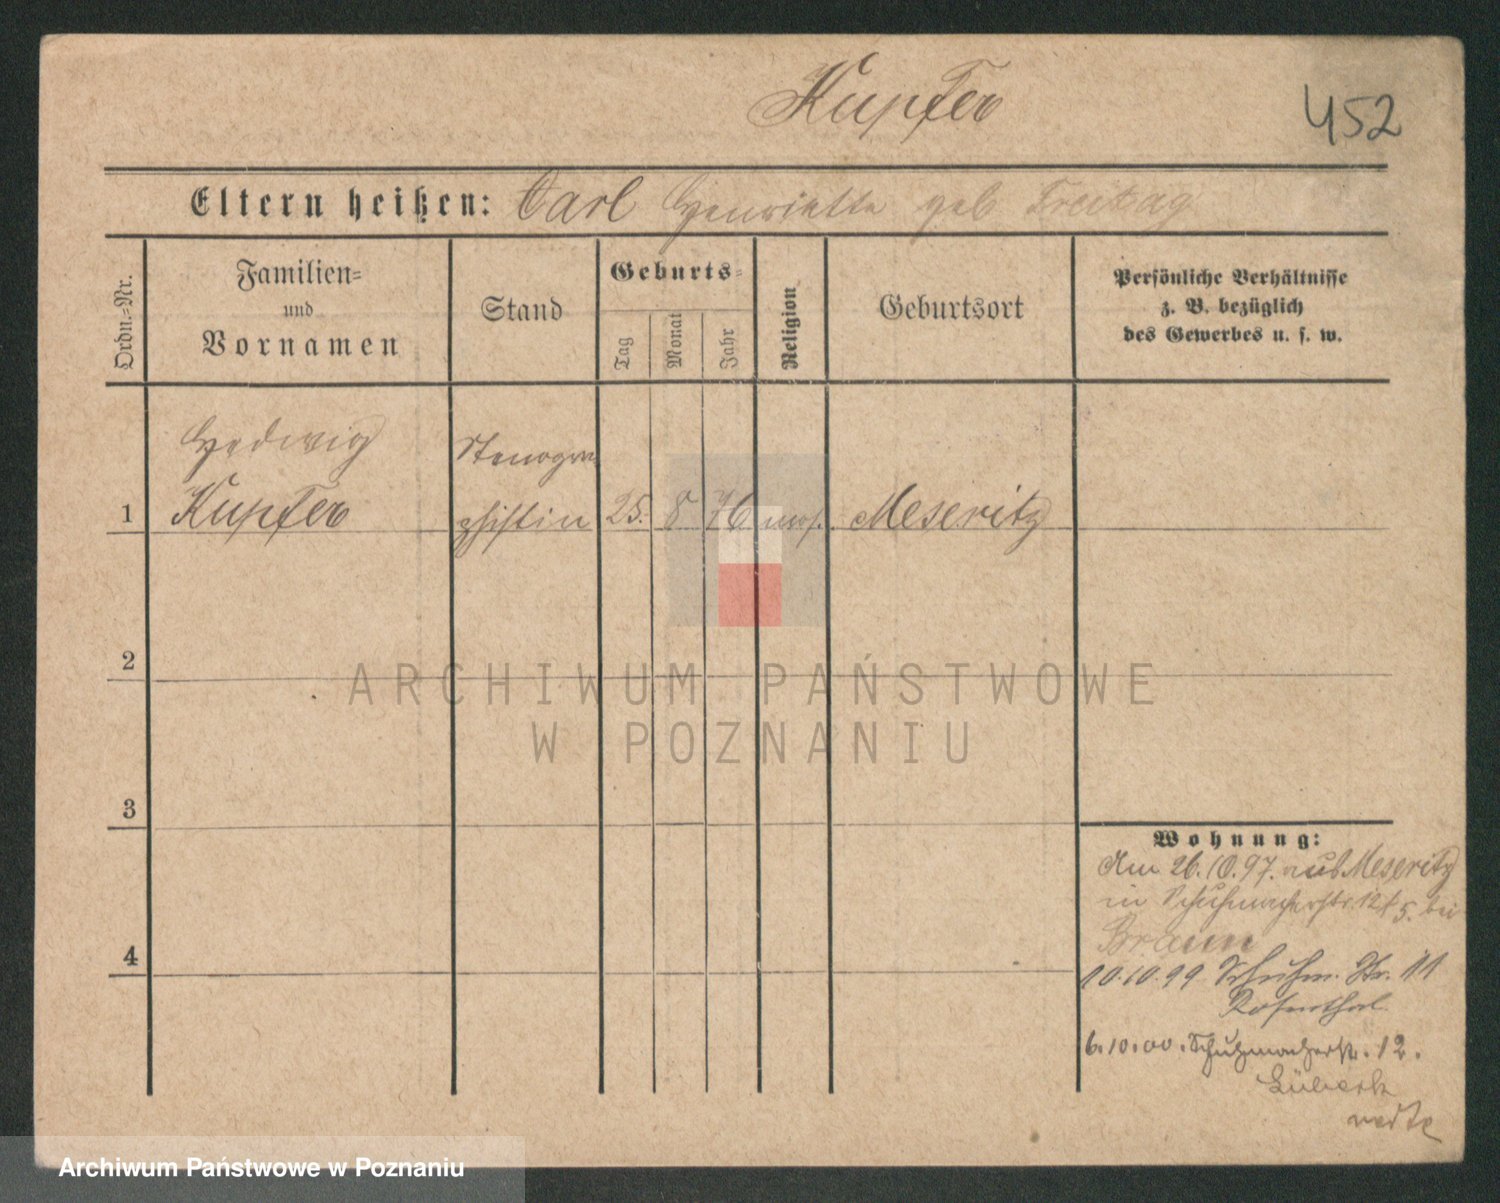 Kupfer
452
Eltern heißen: Carl Henriette geb Freitag
Ordn.-Nr.
Familien-
und
Vornamen
Stand
Geburts-
Tag
Monat
Jahr
Religion
Geburtsort
Persönliche Verhältnisse
z. B. bezüglich
des Gewerbes u. s. w.
Hedwig
Kupfer
Stenogra
phistin
1
25. 8 76 mos. Meseritz
2
ARCHIWUM PAŃSTWOWE
W POZNANIU
3
4
Wohnung:
Am 26.10.97. aus Meseritz
in Schuhmacherstr. 12 bei
Braun
10.10.99 Schuhm. Str. 11
Rosenthal
6.10.00. Schuhmacherstr. 12.
Archiwum Państwowe w Poznaniu